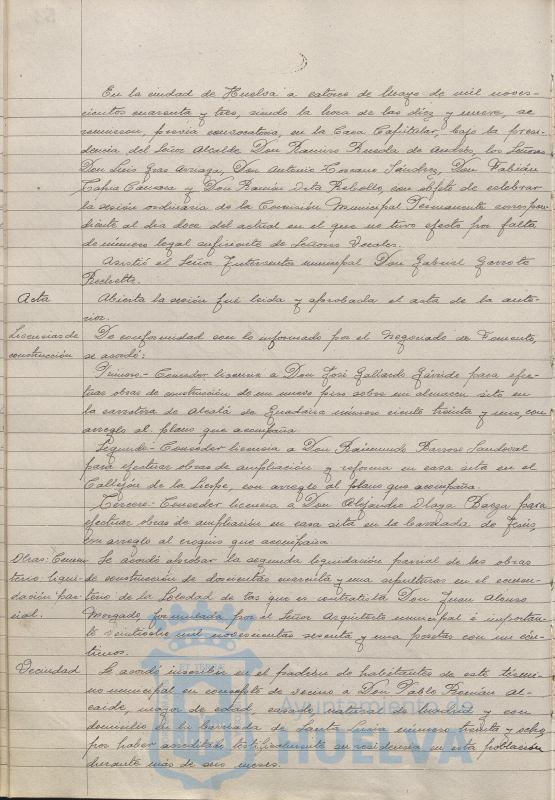 En la ciudad de Huelva a catorce de Mayo de mil noves-
cientos cuarenta y tres, siendo la hora de las diez y nueve, se
reunieron, previa convocatoria, en la Casa Capitular, bajo la presi-
dencia del Señor Alcalde Don Ramiro Rueda de Andrés, los Señores
Don Luis Gras Arriaga, Don Antonio Toscano Sánchez, Don Fabián
Cámara y Don Ramón Rebollo, con objeto de celebrar
la sesión ordinaria de la Comisión Municipal Permanente correspon-
diente al dia doce del actual en el que no tuvo efecto por falta
de número legal suficiente de Señores Vocales.
Asistió el Señor Interventor municipal Don Gabriel Garrote
Acta
Abierta la sesión fué leida y aprobada el acta de la ante-
rior.
Licencias de
construcción
De conformidad con lo informado por el Negociado de Fomento,
se acordó:
Primero.- Conceder licencia a Don José Gallardo para efec-
tuar obras de construcción de un nuevo piso sobre un almacen sito en
la carretera de Alcalá de Guadaira número ciento treinta y uno, con
arreglo al plano que acompaña.
Segundo.- Conceder licencia a Don Raimundo Barroso Sandoval
para efectuar obras de ampliación y reforma en casa sita en el
Callejón de la con arreglo al plano que acompaña.
Tercero.- Conceder licencia a Don Alejandro Olaya para
efectuar obras de ampliación en casa sita en la barriada de
con arreglo al croquis que acompaña.
Obras: Cemen-
terio liqui-
dación par-
cial.
Se acordó aprobar la segunda liquidación parcial de las obras
de construcción de doscientas cuarenta y una sepulturas en el cemen-
terio de la Soledad de las que es contratista Don Juan Alonso
Morgado, formulada por el Señor Arquitecto municipal é importan-
te veintiocho mil novecientas sesenta y una pesetas con cén-
timos.
Vecindad
Se acordó inscribir en el padrón de habitantes de este térmi-
no municipal en concepto de vecino a Don Pablo Román Al-
caide, mayor de edad, casado, natural de Madrid y con
domicilio en la barriada de Santa número treinta y ocho,
por haber acreditado su residencia en esta población
durante más de seis meses.
Ayuntamiento de
HUELVA